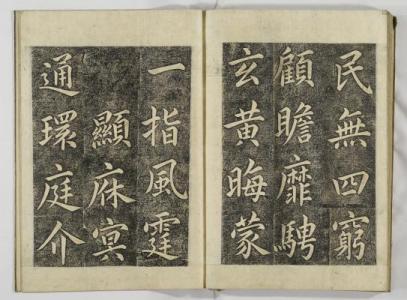 民無四窮
顧瞻靡騁
玄黃晦蒙
一指風霆
顯庥冥
通環庭介